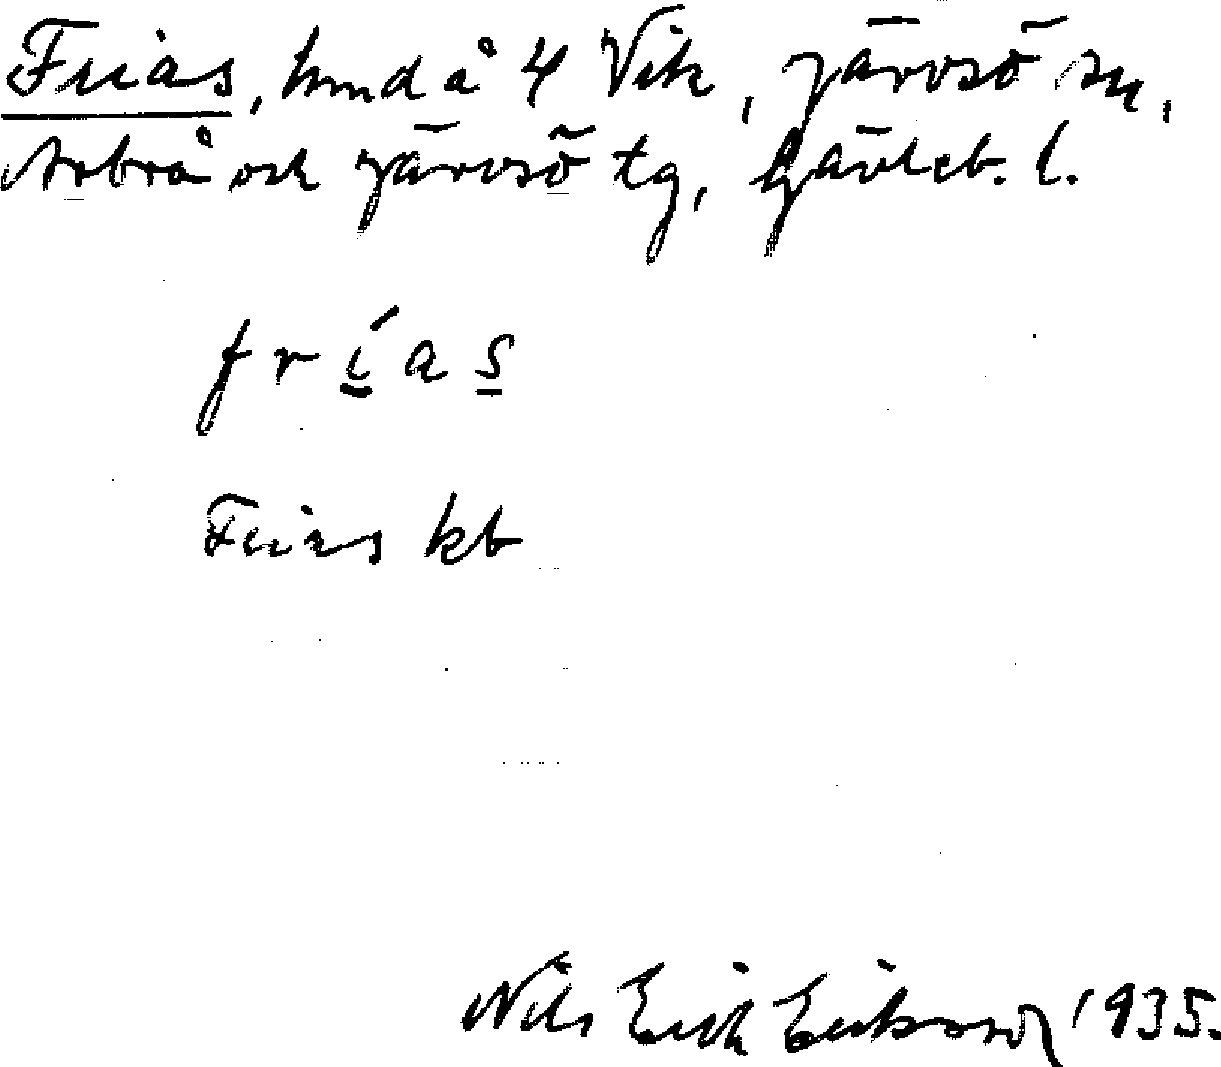 Frias, hmd å 4 Vik, Järvsö sn,
Arbrå och Järvsö tg, Gävleb. l.
frías
Frias kb
Nils Erik Erikson 1935.